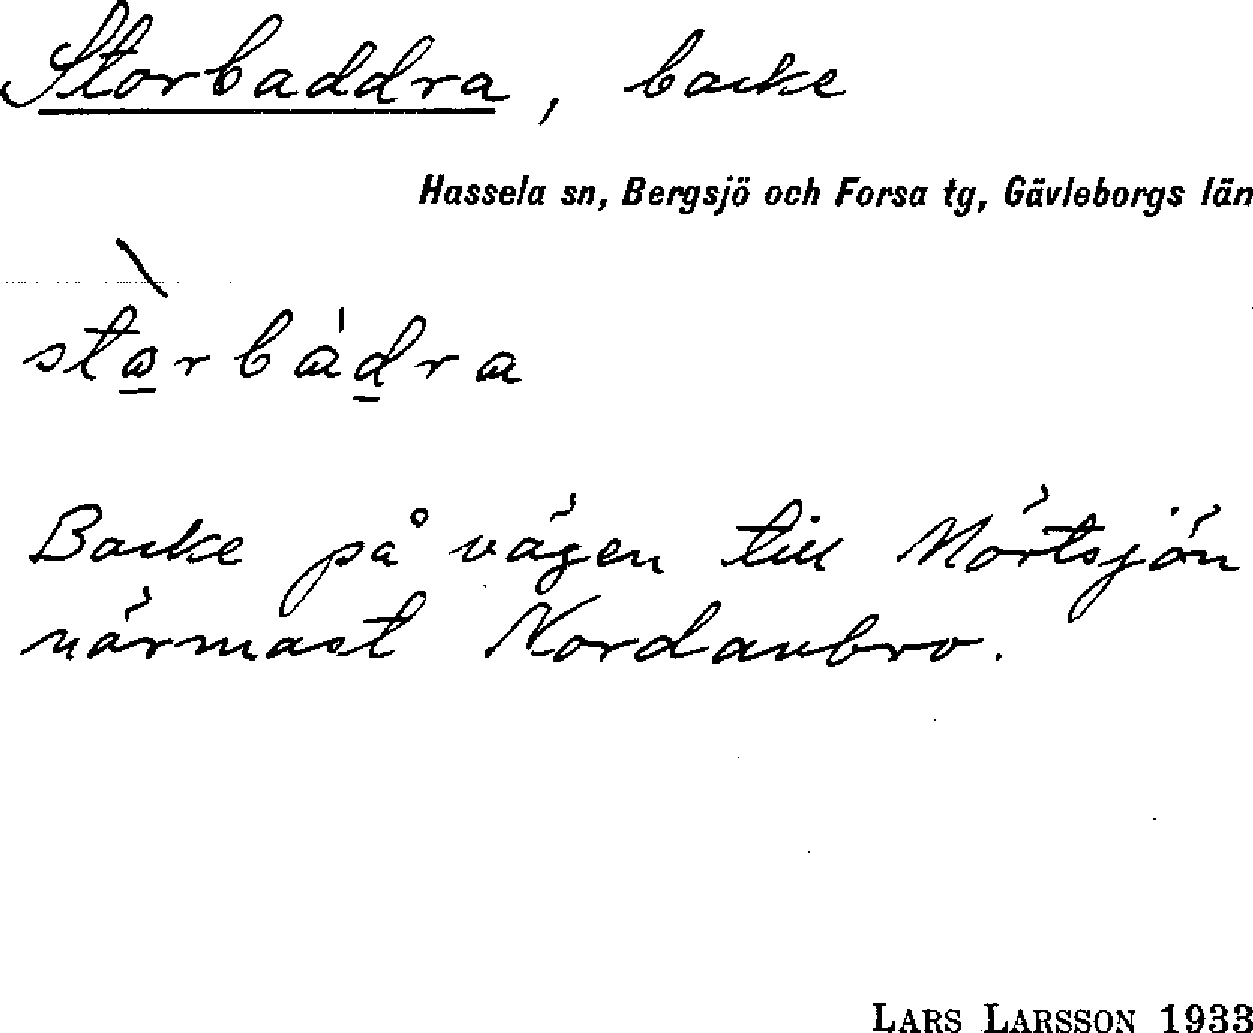 Storbaddra, backe
Hassela sn, Bergsjö och Forsa tg, Gävleborgs län
Backe på vägen till Mörtsjön
närmast Nordanbro.
LARS LARSSON 1933